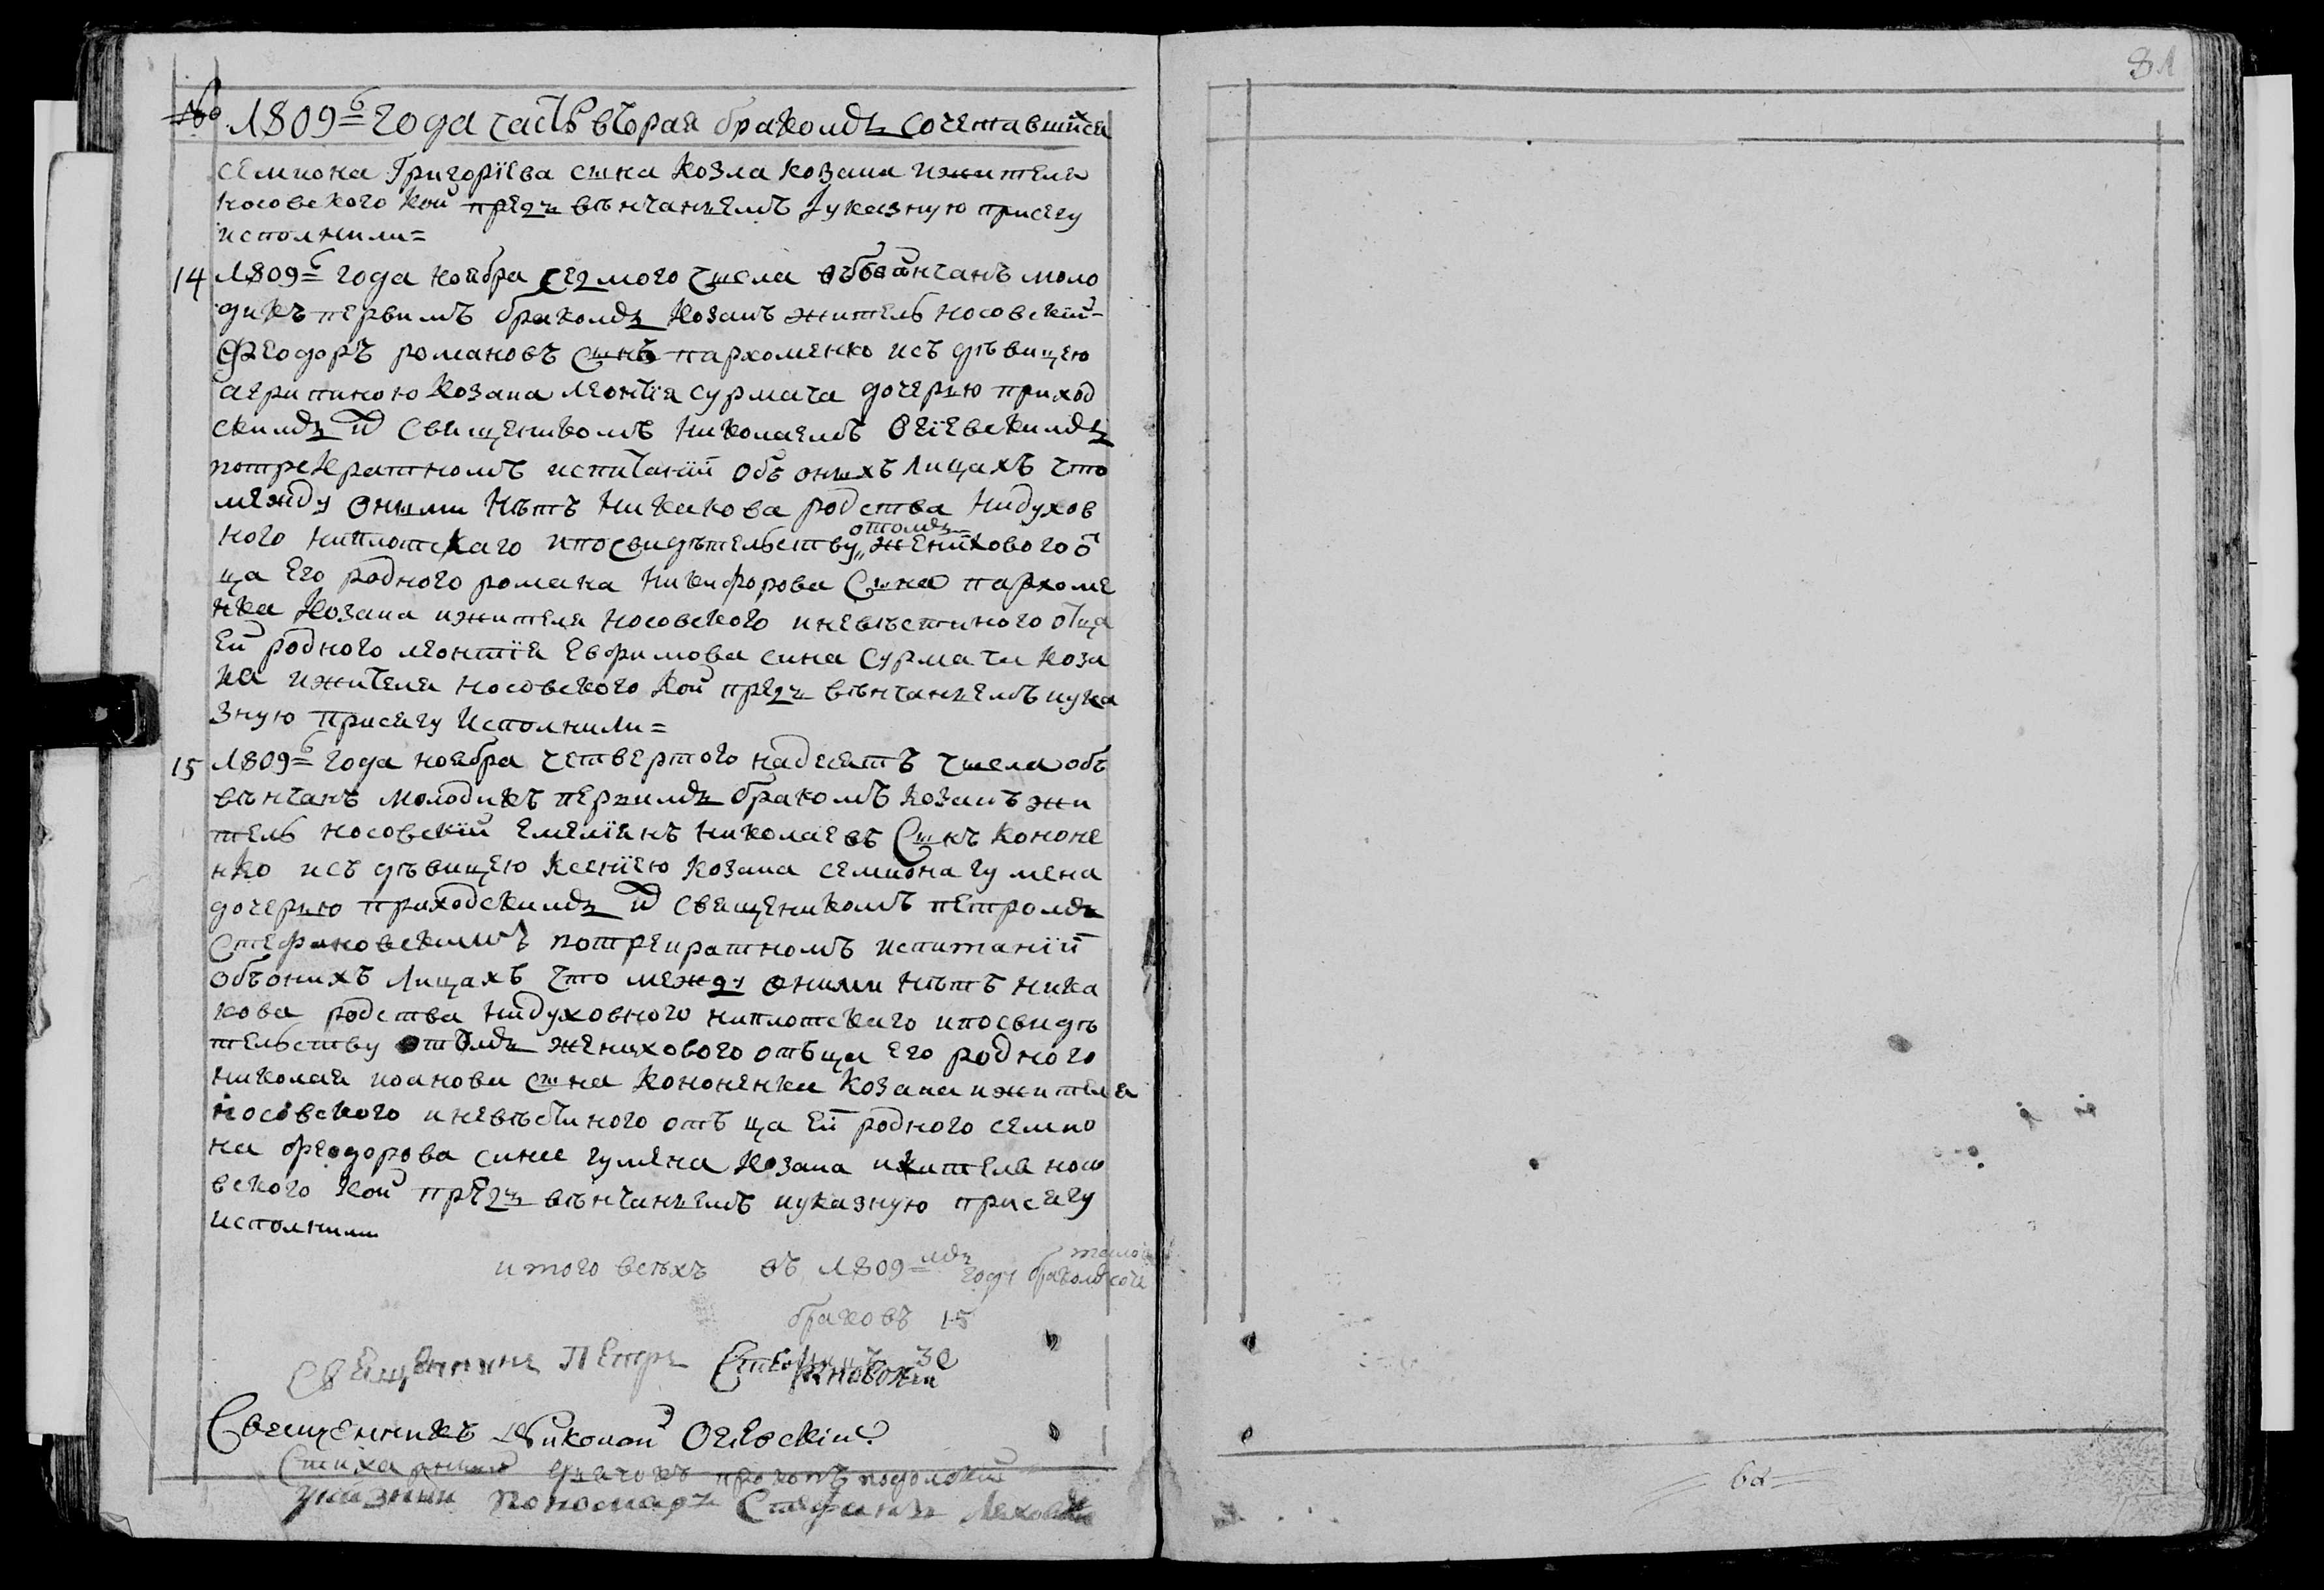 81
№ 1809го года часть вторая бракомъ сочетавшихся
семиона Григорїева сына Козла козака ижителя
носовского кои предъ венчанъемъ иуказную присягу
исполнили=
14 1809го года ноября седмого числа обвѣнчанъ моло
дикъ первимъ бракомъ козакъ житель носовскїй
Феодоръ романовъ сынъ пархоменко исъ дѣвицею
агрипиною козака леонтїя сурмача дочерью приход
скимъ и священикомъ николаемъ Огїевскимъ
потрекратномъ испитанїи объ онихъ лицахъ что
между оными нѣтъ никакова родства нидухов
ного ниплотскаго ипосвидѣтельству отомъ жениховогоо
ца его родного романа никифорова сына пархоме
нка козака ижителя носовского иневѣстиного отца
ей родного леонтїя евфимова сина сурмача коза
ка ижителя носовского кои предъ вѣнчанъемъ иука
зную присягу исполнили=
15 1809го года ноября четвертого надесятъ числа объ
вѣнчанъ молодикъ первимъ бракомъ козакъ жи
тель носовскїй емелїянъ николаевъ сынъ кононе
нко исъ дѣвицею ксенїею козака семиона гумена
дочерью приходскимъ и священикомъ петромъ
Стефановскимъ потрекратномъ испитанїи
объонихъ лицахъ что между оними нѣтъ ника
кова родства нидуховного ниплотскаго ипосвидѣ
тельству отомъ женихового отъца его родного
николая иоанова сына кононенка козака ижителя
носовского иневѣстиного отъца ей родного семио
на феодорова сина гумена козака ижителя носо
вского кои предъ вѣнчанъемъ иуказную присягу
исполнили
итого всѣхъ въ 1809мъ году бракомъ соче
браковъ 15
30
Священникъ Петръ Стефановскїй
Священникъ Николай Огіевскій
Стихарный дячокъ прокопъ подолскїй
указний пономаръ Стефанъ Леховскїй